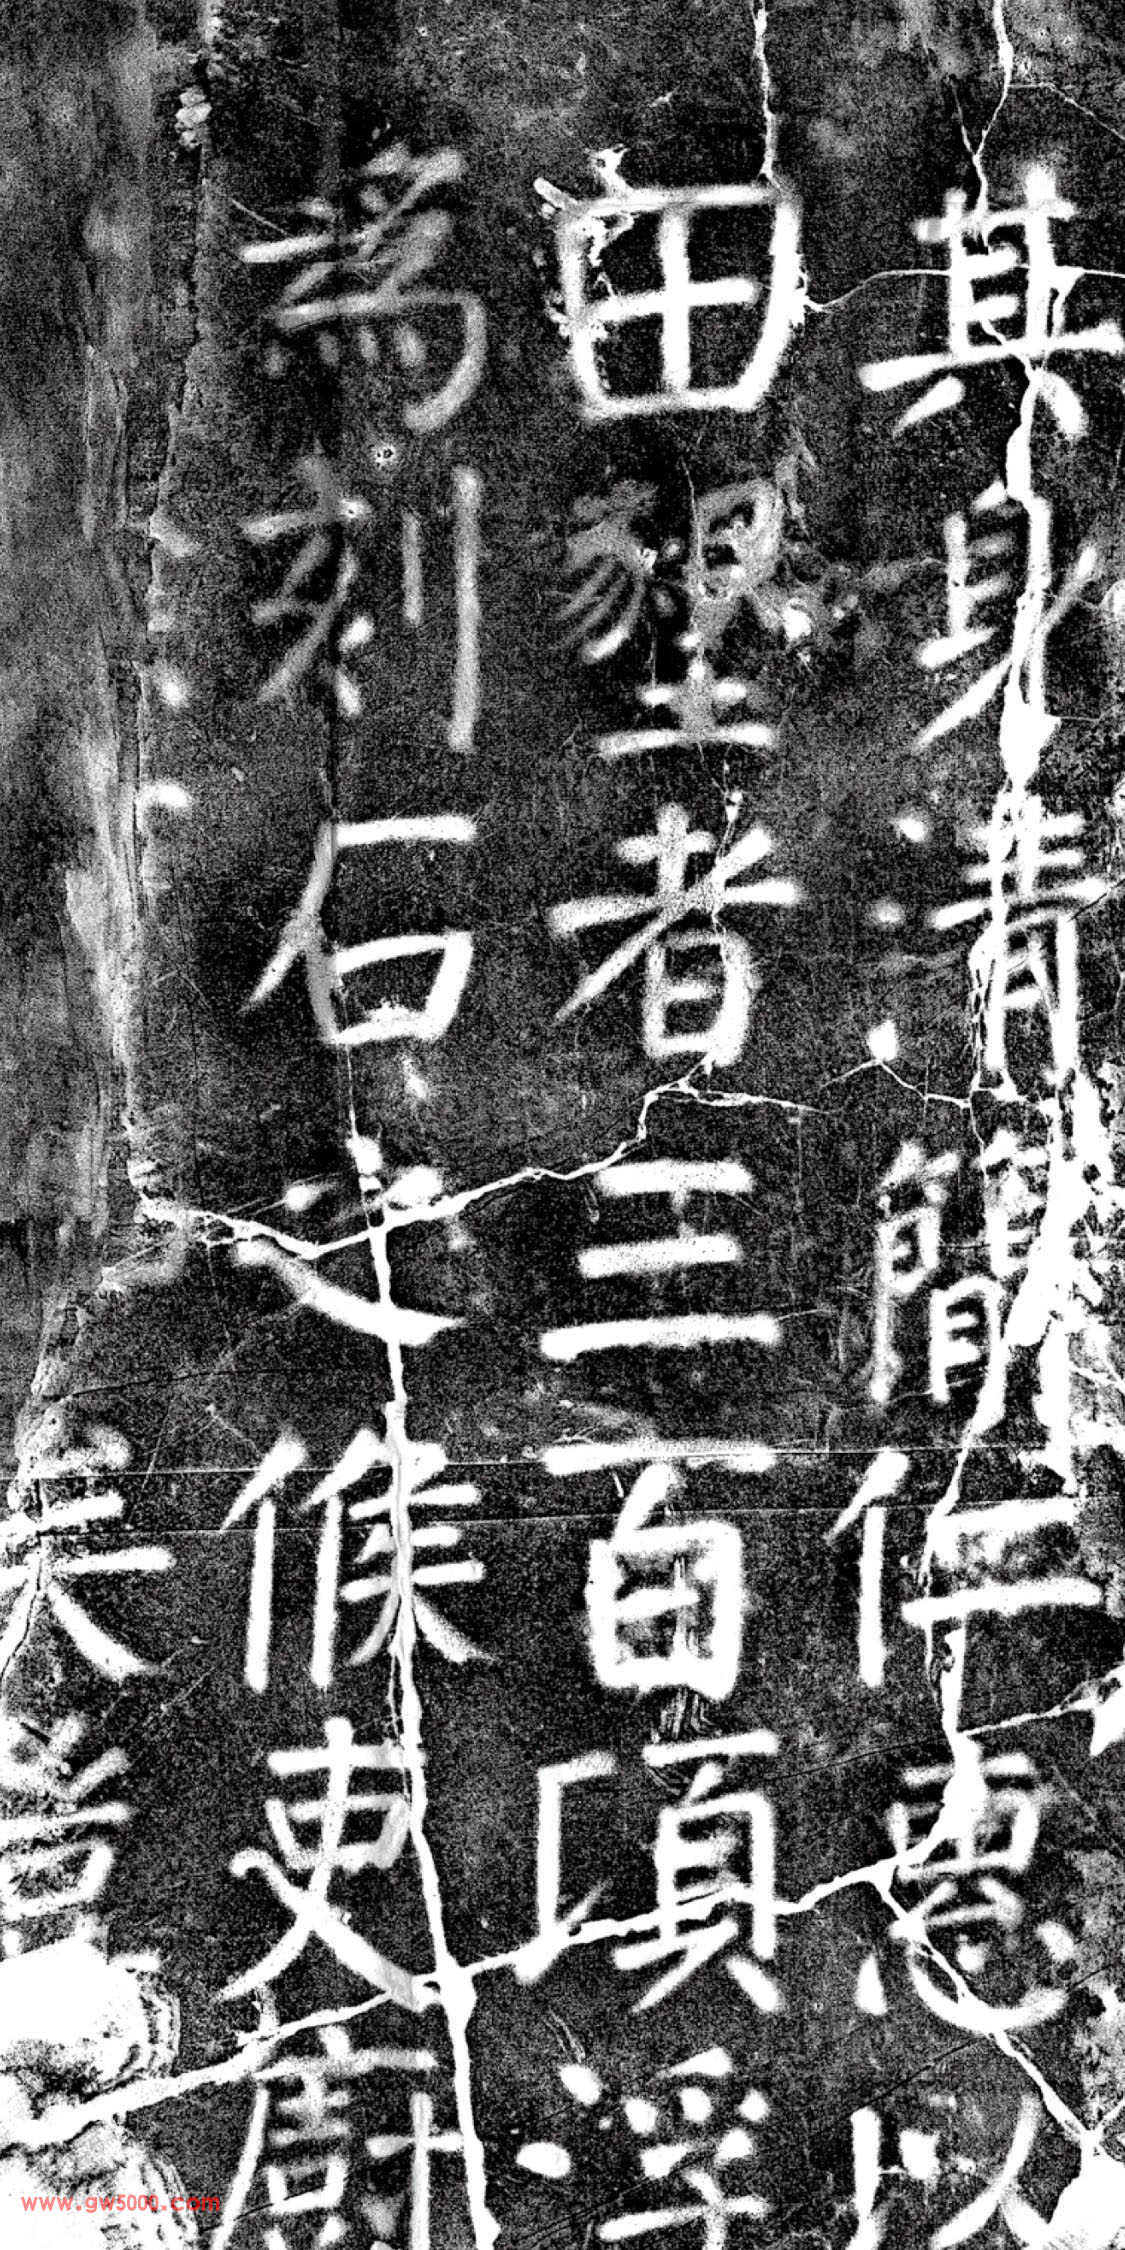 其身清簡仁惠以
田墾者三百頃浮
爲刻石之候吏廚
www.gw5000.com